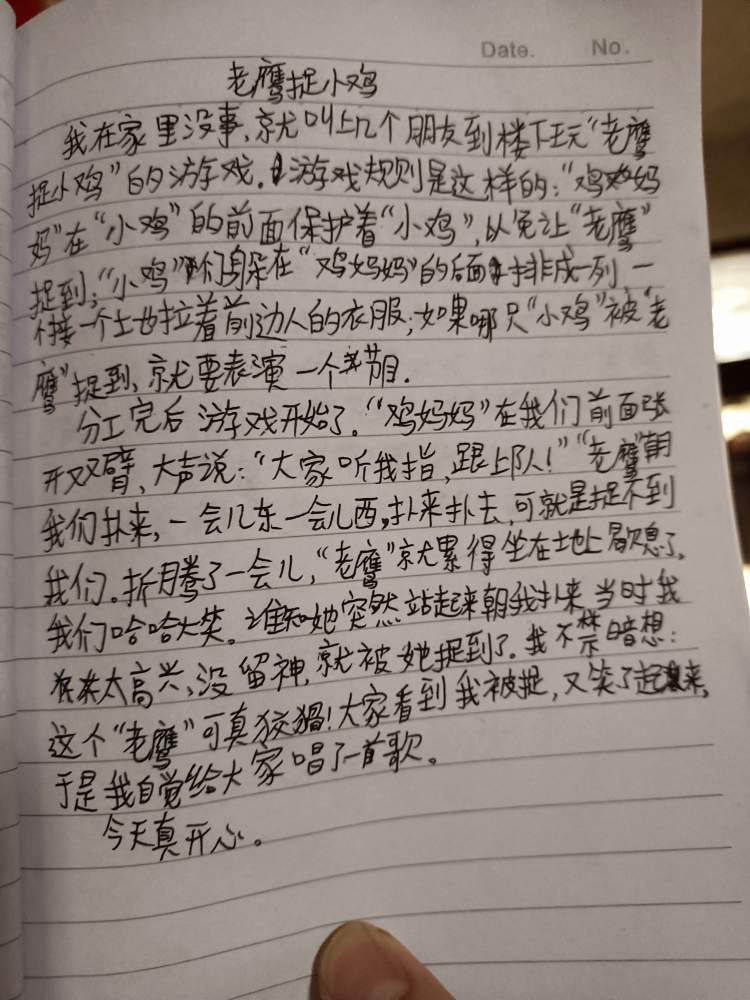 Date. No.
老鹰捉小鸡
我在家里没事,就叫上几个朋友到楼下玩“老鹰
捉小鸡”的游戏。游戏规则是这样的:“鸡妈
妈”在“小鸡”的前面保护着“小鸡”,以免让“老鹰”
捉到;“小鸡”们躲在“鸡妈妈”的后面排成一列一
个接一个地拉着前边人的衣服;如果哪只“小鸡”被“老
鹰”捉到,就要表演一个节目.
分工完后游戏开始了。“鸡妈妈”在我们前面张
开双臂,大声说:“大家听我指,跟上队!”“老鹰”朝
我们扑来,一会儿东一会儿西,扑来扑去,可就是捉不到
我们。折腾了一会儿,“老鹰”就累得坐在地上歇息了。
我们哈哈大笑。谁知她突然站起来朝我扑来,当时我
太高兴,没留神,就被她捉到了。我不禁暗想:
这个“老鹰”可真狡猾!大家看到我被捉,又笑了起来,
于是我自觉给大家唱了一首歌。
今天真开心。